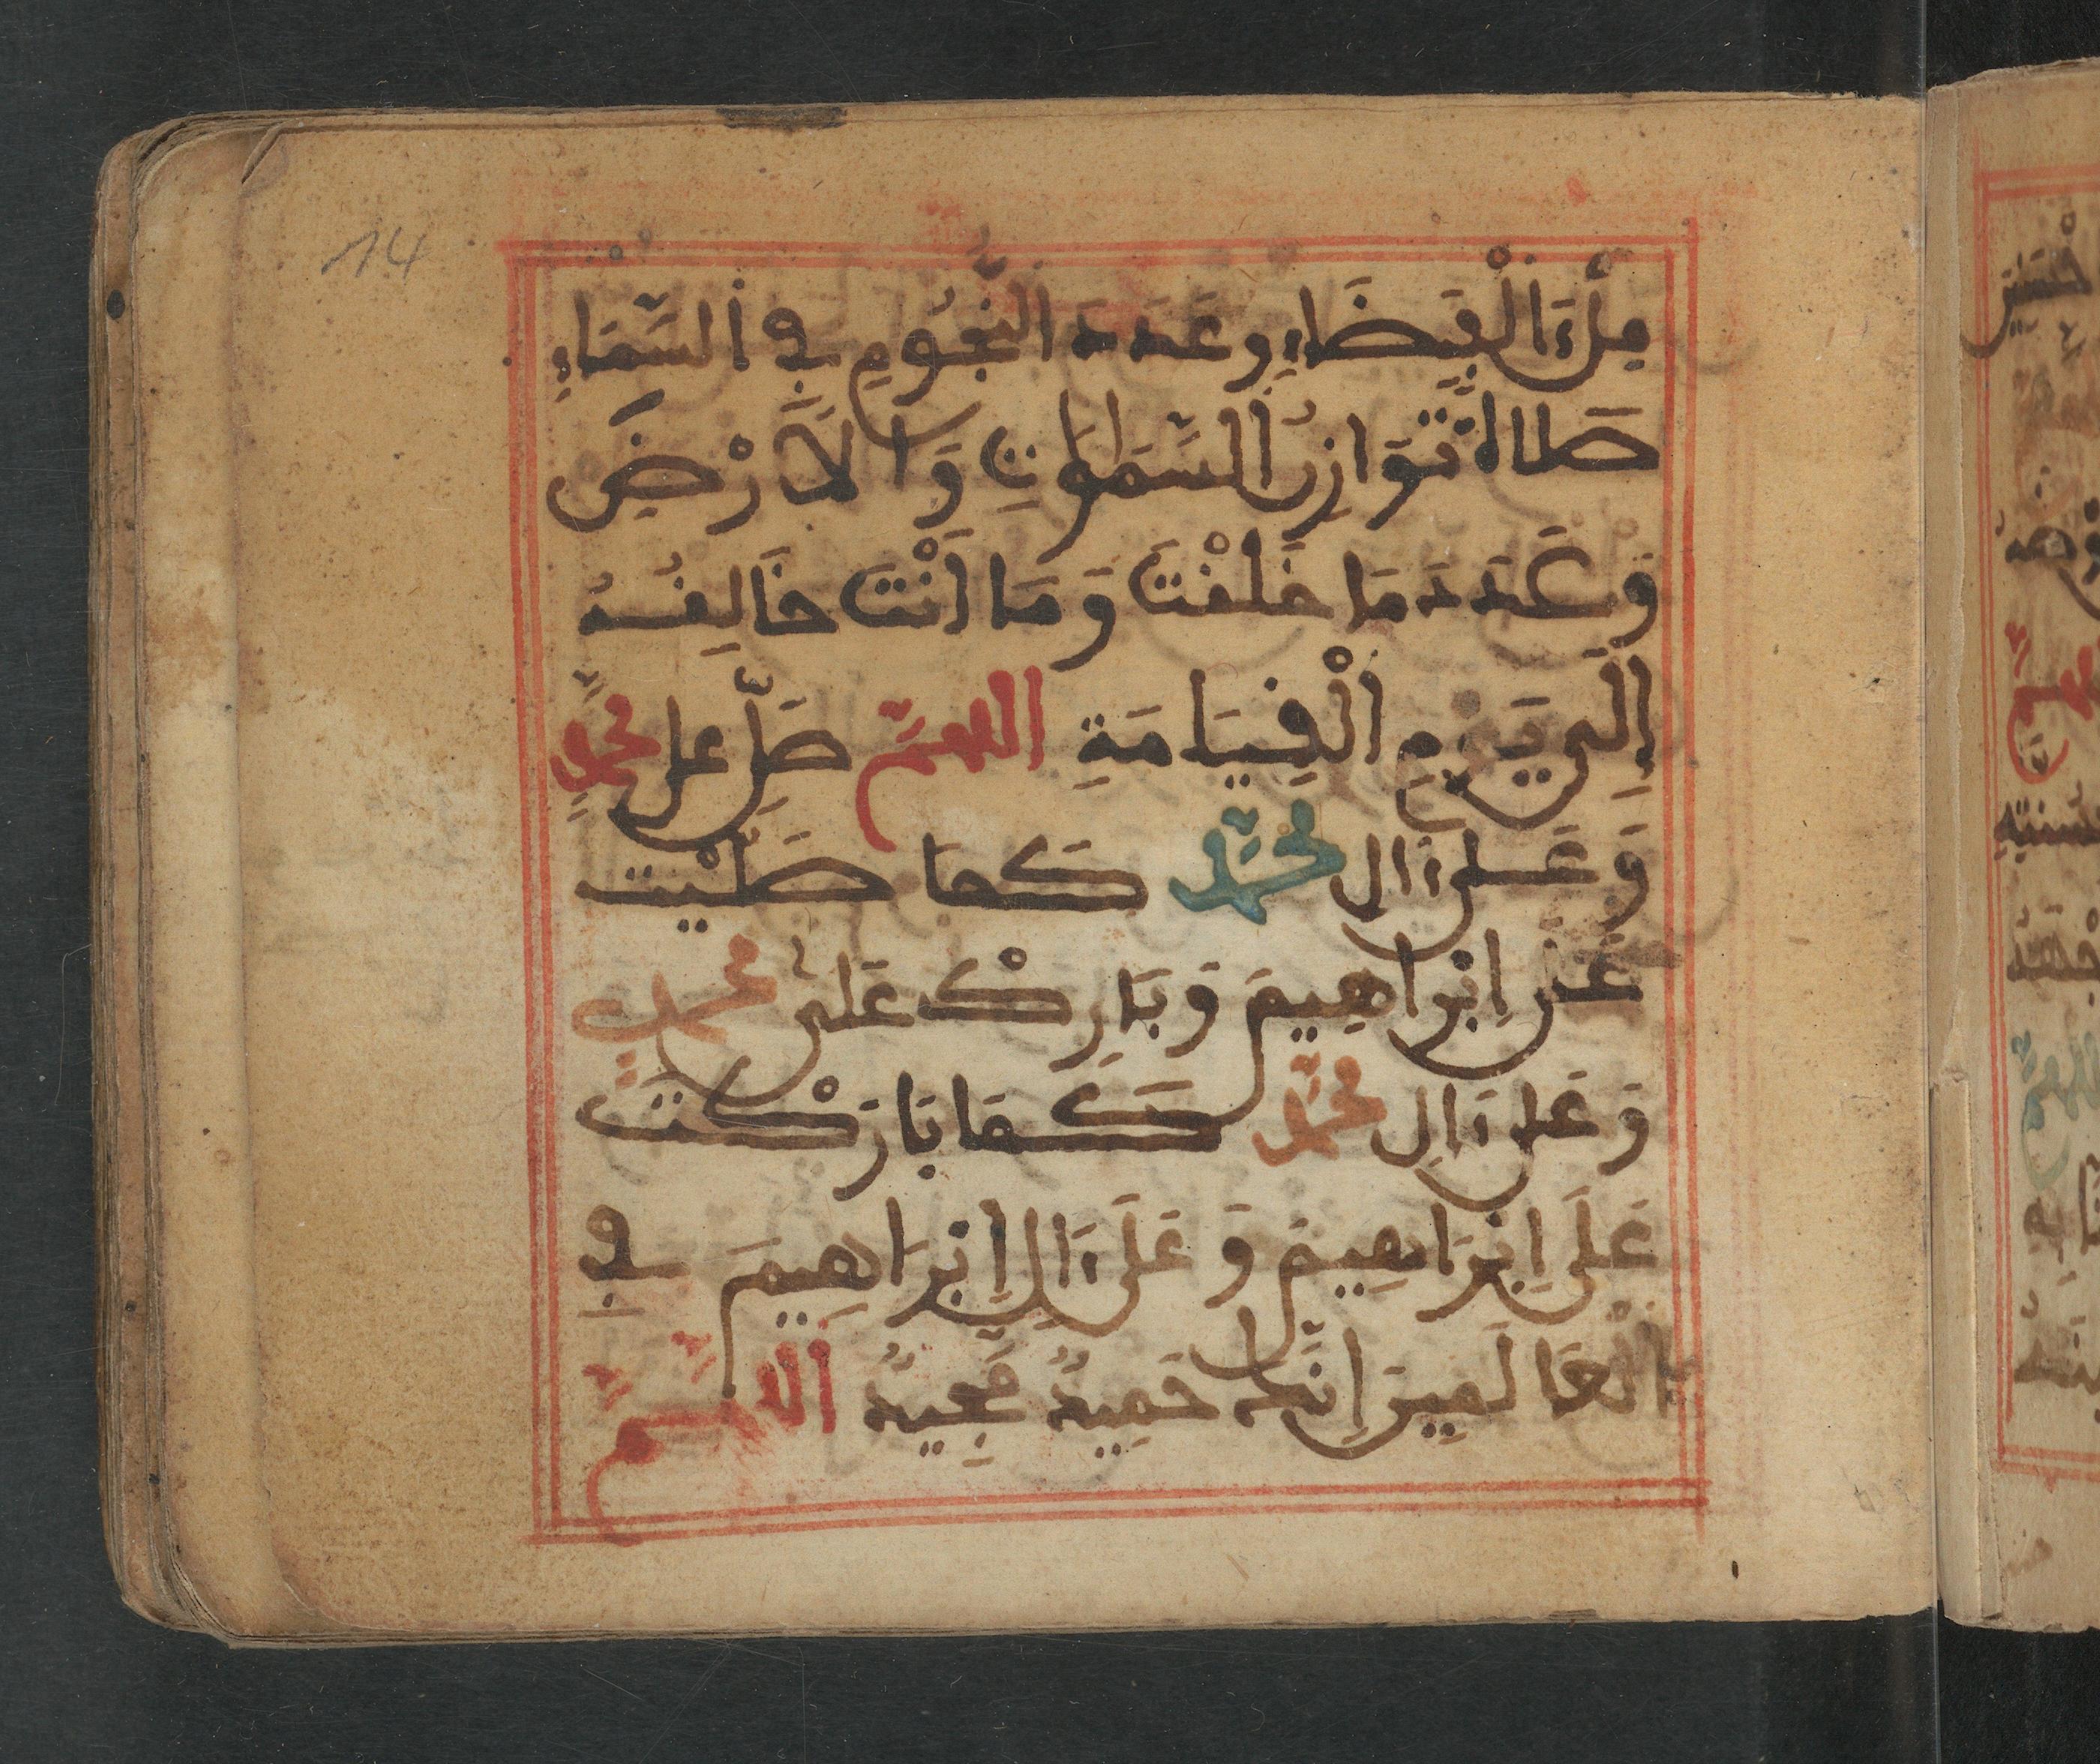 14
مِلْءَ الْفَضَاءِ وعَدَدَ النُّجُومِ فِي السَّمَاءِ
صَلاَةً تُوَازِنُ السَّمَٰوَٰتِ وَالاَرْضَ
وَعَدَدَ مَا خَلَقْتَ وَمَا أَنْتَ خَالِقُهُ
إِلَى يَوْمِ الْقِيَامَةِ اللهمَّ صَلِّ على محمّدٍ
وَعَلى ءَالِ محمّد كَمَا صَلَّيْت
عَلى إِبْرَاهِيمَ وَبَارِكْ عَلى محمدٍ
وَعَلى ءَالِ محمّد كَمَا بَارَكْتَ
عَلَى إِبْرَاهِيمَ وَعَلَى ءَالِ إِبْرَاهِيمَ فِي
الْعَالَمِينَ إِنَّكَ حَمِيدٌ مَّجِيدٌ اللهمّ